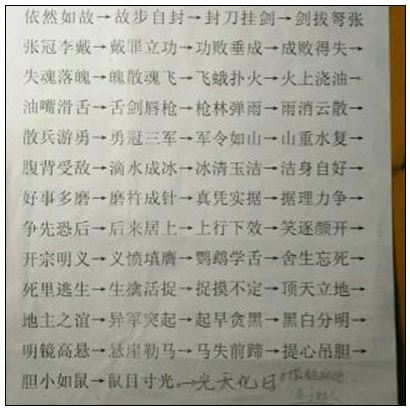 依然如故→故步自封→封刀挂剑→剑拔弩张
张冠李戴→戴罪立功→功败垂成→成败得失→
失魂落魄→魄散魂飞→飞蛾扑火→火上浇油→
油嘴滑舌→舌剑唇枪→枪林弹雨→雨消云散→
散兵游勇→勇冠三军→军令如山→山重水复→
腹背受敌→滴水成冰→冰清玉洁→洁身自好→
好事多磨→磨杵成针→真凭实据→据理力争→
争先恐后→后来居上→上行下效→笑逐颜开→
开宗明义→义愤填膺→鹦鹉学舌→舍生忘死→
死里逃生→生擒活捉→捉摸不定→顶天立地→
地主之谊→异军突起→起早贪黑→黑白分明→
明镜高悬→悬崖勒马→马失前蹄→提心吊胆→
胆小如鼠→鼠目寸光→光天化日